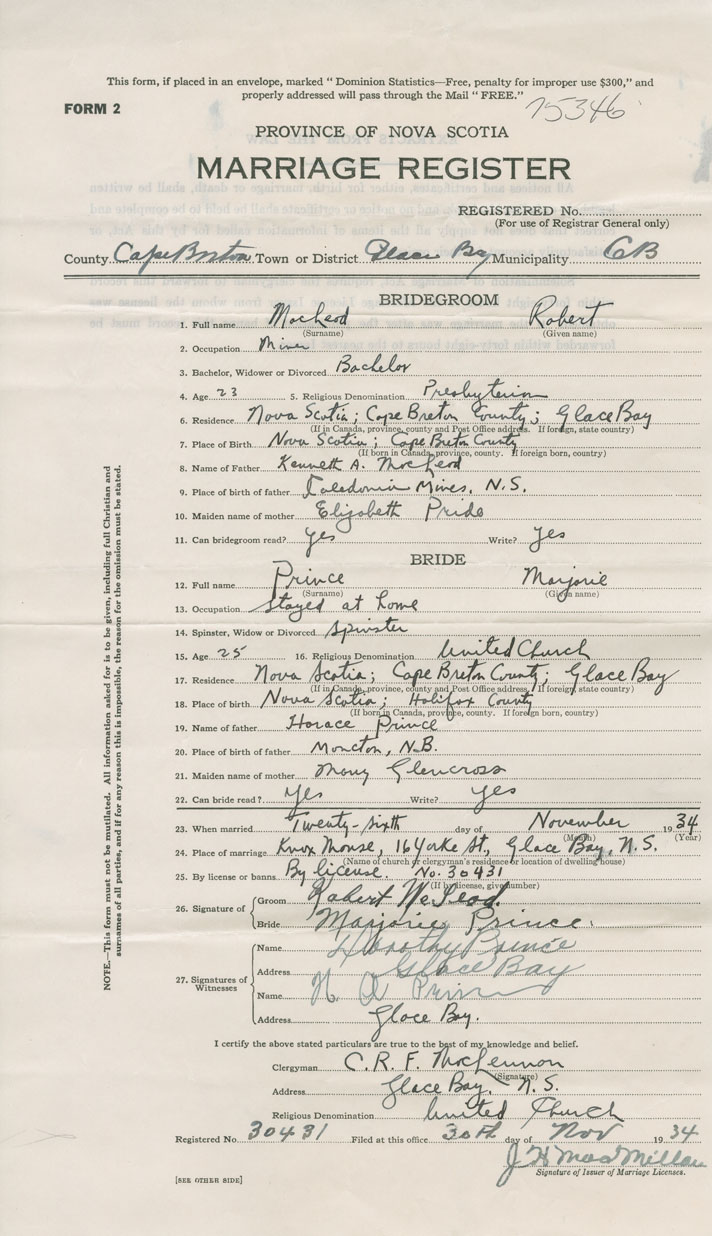 This form, if placed in an envelope, marked " Dominion Statistics—Free, penalty for improper use $300," and
properly addressed will pass through the Mail " FREE."
FORM 2
75346
PROVINCE OF NOVA SCOTIA
MARRIAGE REGISTER
REGISTERED No.
(For use of Registrar General only)
County Cape Breton Town or District Glace Bay Municipality CB
BRIDEGROOM
1. Full name MacLeod Robert
(Surname) (Given name)
2. Occupation Miner
3. Bachelor, Widower or Divorced Bachelor
4. Age 23 5. Religious Denomination Presbyterian
6. Residence Nova Scotia; Cape Breton County; Glace Bay
(If in Canada, province, county and Post Office address. If foreign, state country)
7. Place of Birth Nova Scotia; Cape Breton County
(If born in Canada, province, county. If foreign born, country)
8. Name of Father Kenneth A. MacLeod
9. Place of birth of father Caledonia Mines, N.S.
10. Maiden name of mother Elizabeth Pride
11. Can bridegroom read? Yes Write? Yes
BRIDE
12. Full name Prince Marjorie
(Surname) (Given name)
13. Occupation Stayed at home
14. Spinster, Widow or Divorced Spinster
15. Age 25 16. Religious Denomination United Church
17. Residence Nova Scotia; Cape Breton County; Glace Bay
(If in Canada, province, county and Post Office address. If foreign, state country)
18. Place of birth Nova Scotia; Halifax County
(If born in Canada, province, county. If foreign born, country)
19. Name of father Horace Prince
20. Place of birth of father Moncton, N.B.
21. Maiden name of mother Mary Glencross
22. Can bride read? Yes Write? Yes
23. When married Twenty-sixth day of November 1934
(Month) (Year)
24. Place of marriage Knox Manse, 16 Yorke St, Glace Bay, N.S.
(Name of church or clergyman's residence or location of dwelling house)
25. By license or banns By license. No. 30431
(If by license, give number)
26. Signature of Groom Robert McLeod
Bride Marjorie Prince.
27. Signatures of Witnesses
Name Dorothy Prince
Address Glace Bay
Name H. A. Prince
Address Glace Bay.
I certify the above stated particulars are true to the best of my knowledge and belief.
Clergyman C. R. F. MacLennon
(Signature)
Address Glace Bay, N.S.
Religious Denomination United Church
Registered No. 30431 Filed at this office 30th day of Nov 1934
J H MacMillan
Signature of Issuer of Marriage Licenses.
[SEE OTHER SIDE]
NOTE.—This form must not be mutilated. All information asked for is to be given, including full Christian and
surnames of all parties, and if for any reason this is impossible, the reason for the omission must be stated.